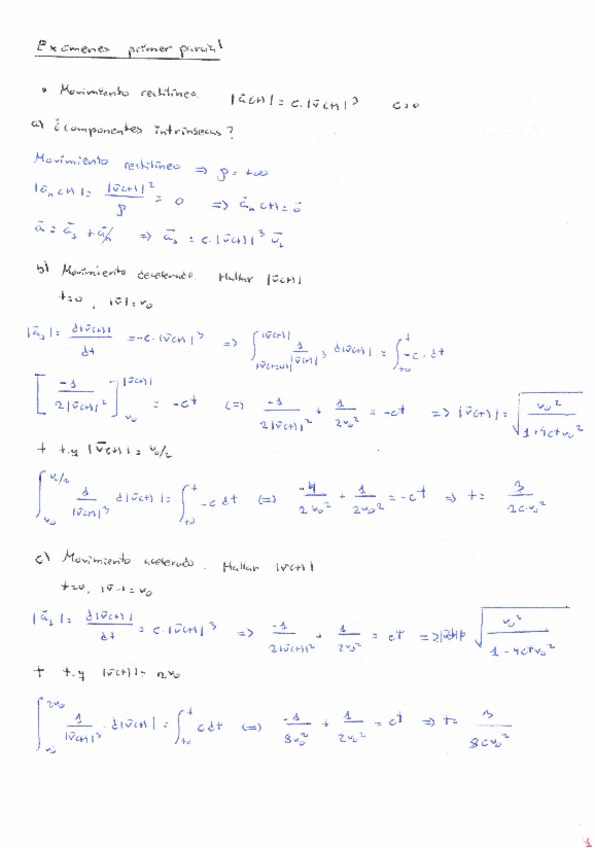 Exámenes primer parcial
• Movimiento rectilíneo. |ā(t)| = c·|v̄(t)|³ c>0
a) ¿componentes intrínsecas?
Movimiento rectilíneo => ρ = +∞
|āₙ(t)| = |v̄(t)|²/ρ = 0 => āₙ(t) = 0̄
ā = āₛ + āₙ => āₛ = c·|v̄(t)|³ v̄ₛ
b) Movimiento decelerado. Hallar |v̄(t)|
t=0, |v̄| = v₀
|āₛ| = d|v̄(t)|/dt = -c·|v̄(t)|³ => ∫_{|v̄(t=0)|}^{|v̄(t)|} 1/|v̄(t)|³ d|v̄(t)| = ∫_{t₀}^{t} -c·dt
[-1/2|v̄(t)|²]_{v₀}^{|v̄(t)|} = -ct (=) -1/2|v̄(t)|² + 1/2v₀² = -ct => |v̄(t)| = √(v₀²/1+4ctv₀²)
t t.q |v̄(t)| = v₀/2
∫_{v₀}^{v₀/2} 1/|v̄(t)|³ d|v̄(t)| = ∫_{t₀}^{t} -c dt (=) -4/2v₀² + 1/2v₀² = -ct => t = 3/2c·v₀²
c) Movimiento acelerado. Hallar |v̄(t)|
t=0, |v̄| = v₀
|āₛ| = d|v̄(t)|/dt = c·|v̄(t)|³ => -1/2|v̄(t)|² + 1/2v₀² = ct => √(v₀²/1-4ctv₀²)
t t.q |v̄(t)| = 2v₀
∫_{v₀}^{2v₀} 1/|v̄(t)|³ · d|v̄(t)| = ∫_{t₀}^{t} c dt (=) -1/8v₀² + 1/2v₀² = ct => t = 3/8cv₀²
1